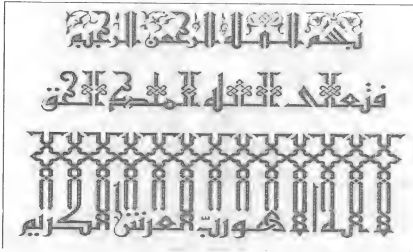 بسم الله الرحمن الرحيم
فتعالى الله الملك الحق
لا اله الا هو رب العرش الكريم